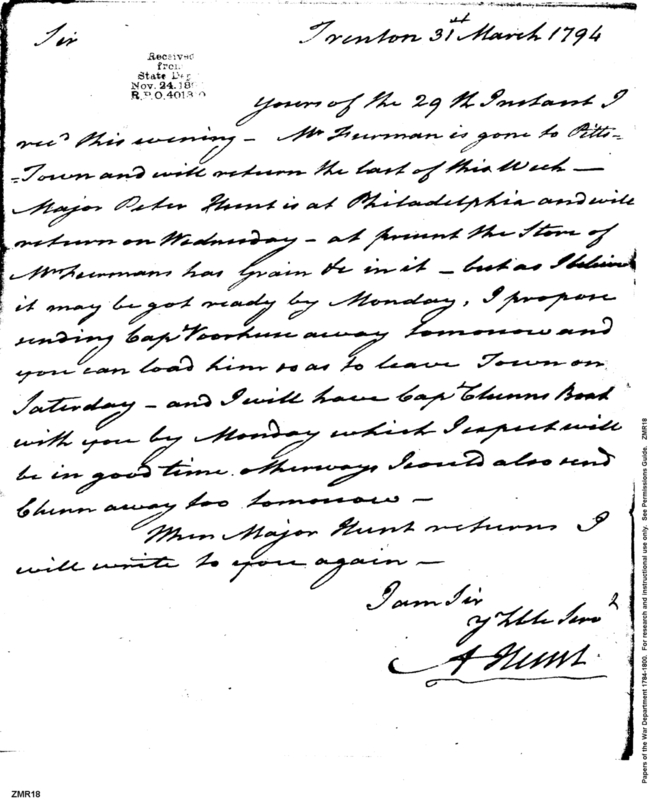 Sir
Trenton 31st March 1794
Received
from
State Dep
Nov. 24. 18
R.P.O. 4013
Yours of the 29th Instant I
recd this evening – Mr Furman is gone to Pitts=
=Town and will return the last of this Week –
Major Peter Hunt is at Philadelphia and will
return on Wednesday – at present the Store of
Mr Furmans has Grain &c in it – but as I believe
it may be got ready by Monday, I propose
sending Capt Voorhese away tomorrow and
you can load him so as to leave Town on
Saturday – and I will have Capt Clunns Boat
with you by Monday which I expect will
be in good time. otherways I could also send
Clunn away too tomorrow –
When Major Hunt returns I
will write to you again –
I am Sir
y Hble Servt
A Hunt
Papers of the War Department 1784-1800. For research and instructional use only. See Permissions Guide. ZMR18
ZMR18